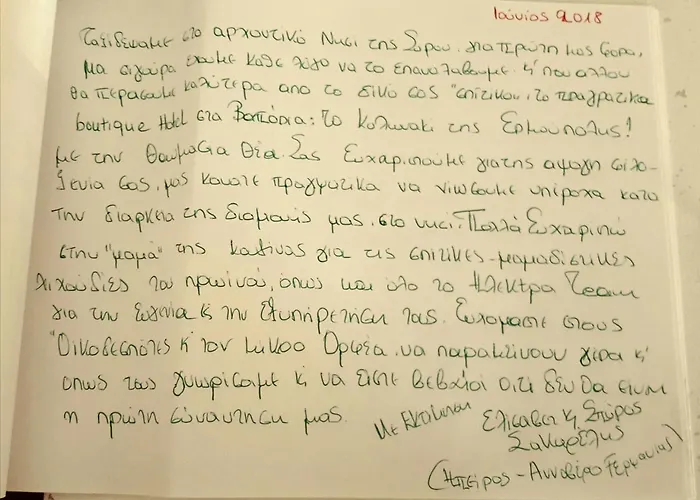 Ιούνιος 2018
Ταξιδέψαμε στο αρχοντικό Νησί της Σύρου, για πρώτη μας φορά,
μα σίγουρα έχουμε κάθε λόγο να το επαναλάβουμε κ' που αλλού
θα περάσουμε καλύτερα απο το δικό σας "σπιτικου", το πραγματικα
boutique Hotel στα Βαπόρια: το Κολωνακι της Ερμούπολης!
με την θαυμασια θέα. Σας Ευχαριστούμε για της αψογη φιλο-
ξενια σας, μας κανατε πραγματικα να νιωσουμε υπέροχα κατα
την διαρκεια της διαμονής μας, στο νησι. Πολλά Ευχαριστώ
στην "μαμά" της κουζινας για τις σπιτικές-μαμαδίστικες
λιχουδιές του πρωϊνού, όπως και όλο το Ηλέκτρα Team
για την Ευγενια κ την εξυπηρετηση τας. Ευχομαστε στους
"Οικοδεσπότες κ' τον μικρο Ορφέα, να παραμείνουν γερα κ'
οπως τους γνωρίσαμε κ να είστε βεβαιοι οτι δεν θα ειναι
η πρώτη συναντηση μας.
Με Εκτίμηση Ελισαβετ κ Σπύρος
(Ηπειρος - Αννοβέρο Γερμανιας)